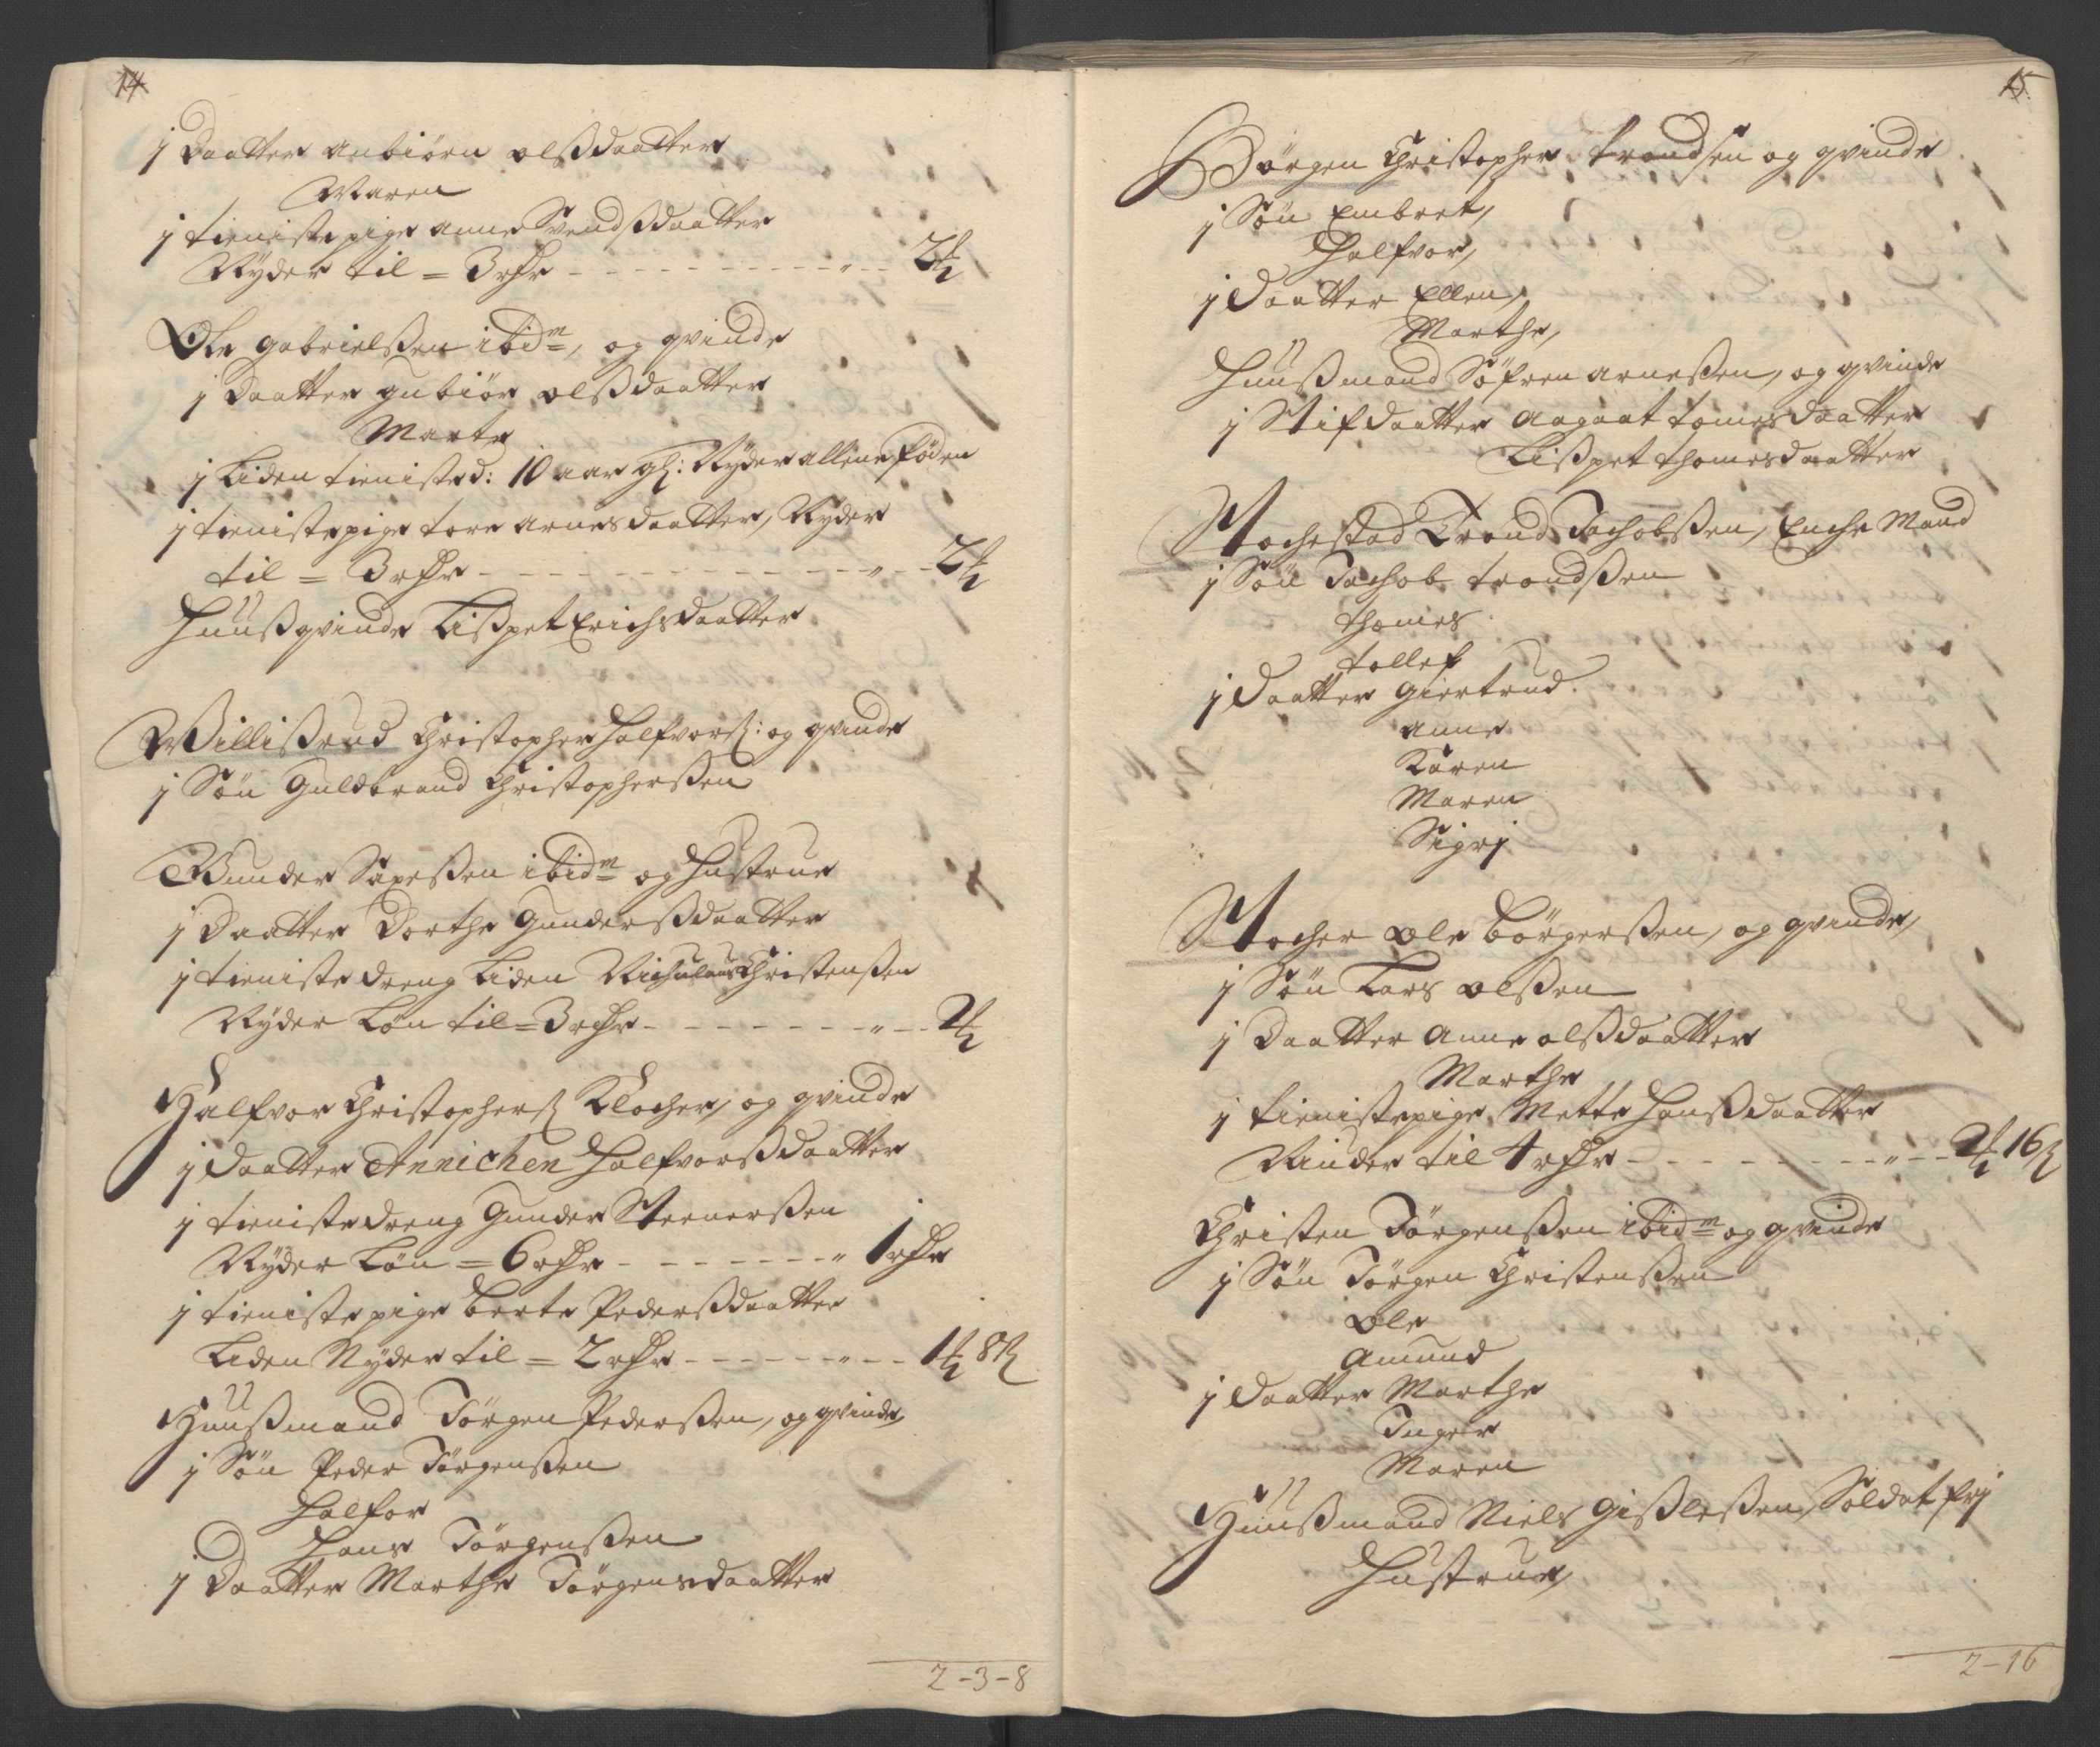 14
j Daatter Anbiørn olssdaatter
Maren
j tieniste pige anne Svendssdaatter
Nÿder til = 3 rdr - - - - - " - - 2 ½
Ole gabrielssen ibidm, og qvinde
j Daatter gubiør olssdaatter
Marte
j Liden tieniste d: 10 aar gl: Nÿder allene føden
j tieniste pige tore arnesdaatter, Nyder
til = 3 rdr - - - - - " - 2 ½
Huussqvinde Lisspet Erichsdaatter
Willissrud Christopher Halfvors: og qvinde
j Søn Guldbrand Christopherssen
Gunder Saxessen ibidm og Hustrue
j Daatter Dorthe Gunderssdaatter
j tieniste dreng Liden Nichulaus Christenssen
Nÿder Løn til = 3 rdr - - - - - " - - 2
Halfvor Christophers Klocher, og qvinde
j Daatter Annichen Halfvorssdaatter
j tieniste dreng Gunder Steenerssen
Nÿder Løn = 6 rdr - - - - - " 1 rdr
j tieniste pige berte Pederssdaatter
Liden Nÿder til = 2 rdr - - - - " - - 1 8 s
Huussmand Jørgen Pederssen, og qvinde
j Søn Peder Jørgenssen
Halfor
Hans Jørgenssen
j Daatter Marthe Jørgensdaatter
2-3-8
15
Børgen Christopher trondsen og qvinde
j Søn Embret,
Halfvor,
j Daatter Ellen,
Marthe,
Huussmand Söfren arnessen, og qvinde
j Stifdaatter Aagaat tomesdaatter
Lisspet thomesdaatter
Stochestad Trond Jachobssen, Enche Mand
j Søn Jachob trondssen
thomes
tollef
j Daatter giertrud.
anne
Karen
Maren
Sigrj
Stocher ole børgerssen, og qvinde,
j Søn Lars olssen
j Daatter Anne olssdaatter
Marthe
j tieniste pige Mette Hanssdaatter
Niuder til 4 rdr - - - - - " - - 2 16 s
Christen Jørgenssen ibidm og qvinde
j Søn Jørgen Christenssen
ole
Amund
j Daatter Marthe
Inger
Maren
Huussmand Niels Gisslessen, Soldat frj
Hustrue,
2-16